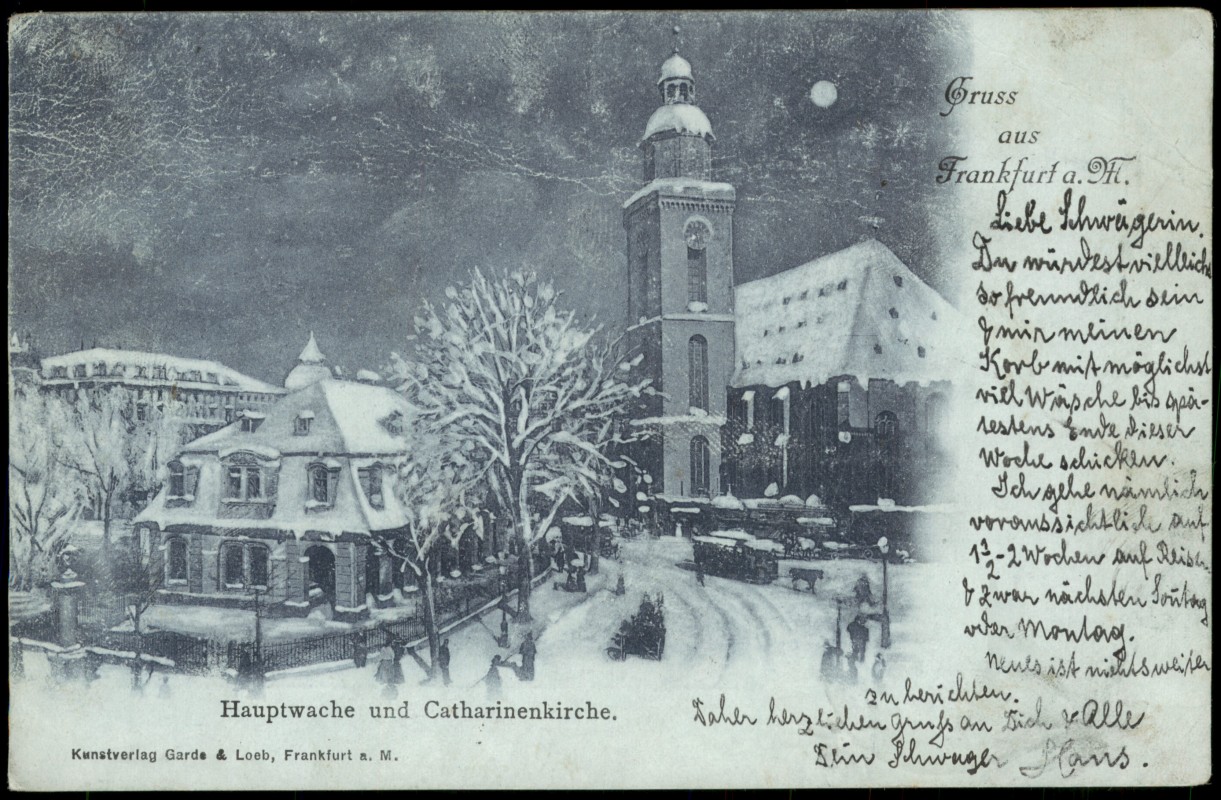 Gruss
aus
Frankfurt a. M.
Liebe Schwägerin.
Du würdest vielleicht
so freundlich sein
& mir meinen
Korb mit möglichst
viel Wäsche bis spä-
testens Ende dieser
Woche schicken.
Ich gehe nämlich
voraussichtlich auf
1½-2 Wochen auf Reisen
& zwar nächsten Sontag
oder Montag.
Neues ist nichts weiter
zu berichten.
Daher herzlichen Gruss an Dich & Alle
Dein Schwager Hans.
Hauptwache und Catharinenkirche.
Kunstverlag Garde & Loeb, Frankfurt a. M.